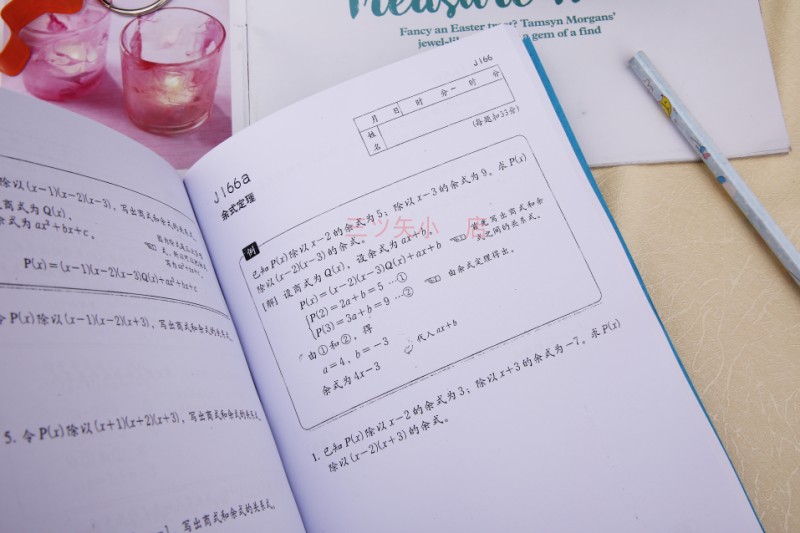 Treasure
Fancy an Easter treat? Tamsyn Morgans'
a gem of a find
除以(x−1)(x−2)(x−3)，写出商式和余式的关系式。
商式为Q(x)，
余式为ax²+bx+c，
P(x)=(x−1)(x−2)(x−3)Q(x)+ax²+bx+c
令P(x)除以(x−1)(x−2)(x+3)，写出商式和余式的关系式。
5. 令P(x)除以(x+1)(x+2)(x+3)，写出商式和余式的关系式。
写出商式和余式的关系式。
J166
月 日 时 分~ 时 分
姓名
(每题扣33分)
J166a
余式定理
例
已知P(x)除以x−2的余式为5；除以x−3的余式为9。求P(x)
除以(x−2)(x−3)的余式。
[解] 设商式为Q(x)，设余式为ax+b，
首先写出商式和余式之间的关系式。
P(x)=(x−2)(x−3)Q(x)+ax+b
P(2)=2a+b=5 …①
P(3)=3a+b=9 …②
由余式定理得出。
由①和②，得
a=4，b=−3
代入ax+b
余式为4x−3
1. 已知P(x)除以x−2的余式为3；除以x+3的余式为−7。求P(x)
除以(x−2)(x+3)的余式。
三ツ矢小 店